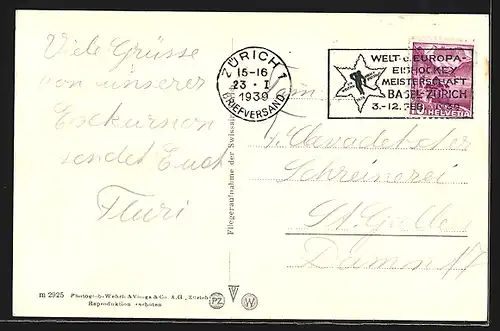 Viele Grüsse
von unserer
Exkursion
sendet Euch
Fluri
ZÜRICH 1
15-16
23·I
1939
BRIEFVERSAND
WELT-u.EUROPA-
EISHOCKEY
MEISTERSCHAFT
BASEL-ZÜRICH
3.-12.FEB. 1939
HELVETIA
Schreinerei
St. Gallen
Fliegeraufnahme der Swissair
m 2925 Photogr.-Wehrli & Vouga & Co. A.G., Zürich
Reproduktion verboten
PZ W